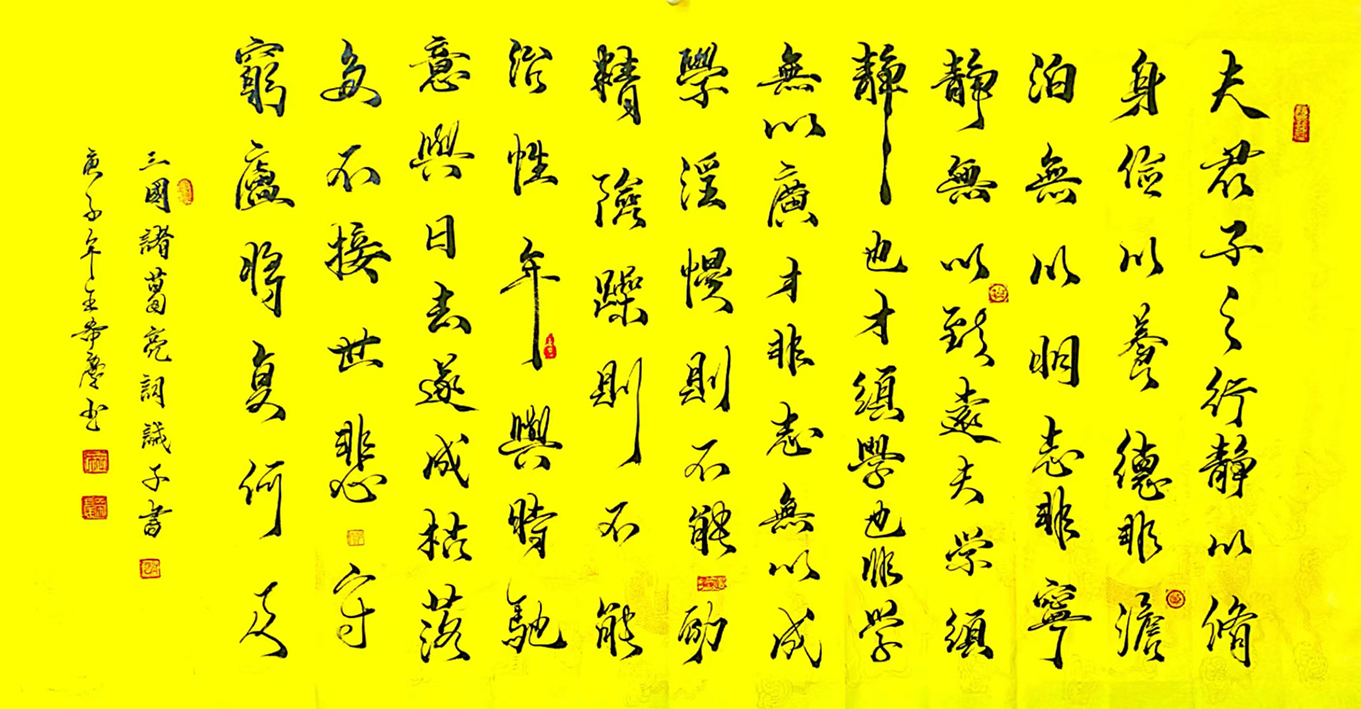 夫君子之行靜以脩
身儉以養德非澹
泊無以明志非寧
靜無以致遠夫學須
靜也才須學也非學
無以廣才非志無以成
學淫慢則不能勵
精險躁則不能
治性年與時馳
意與日去遂成枯落
多不接世悲守
窮廬將復何及
三國諸葛亮詞誡子書
庚子年王希慶書